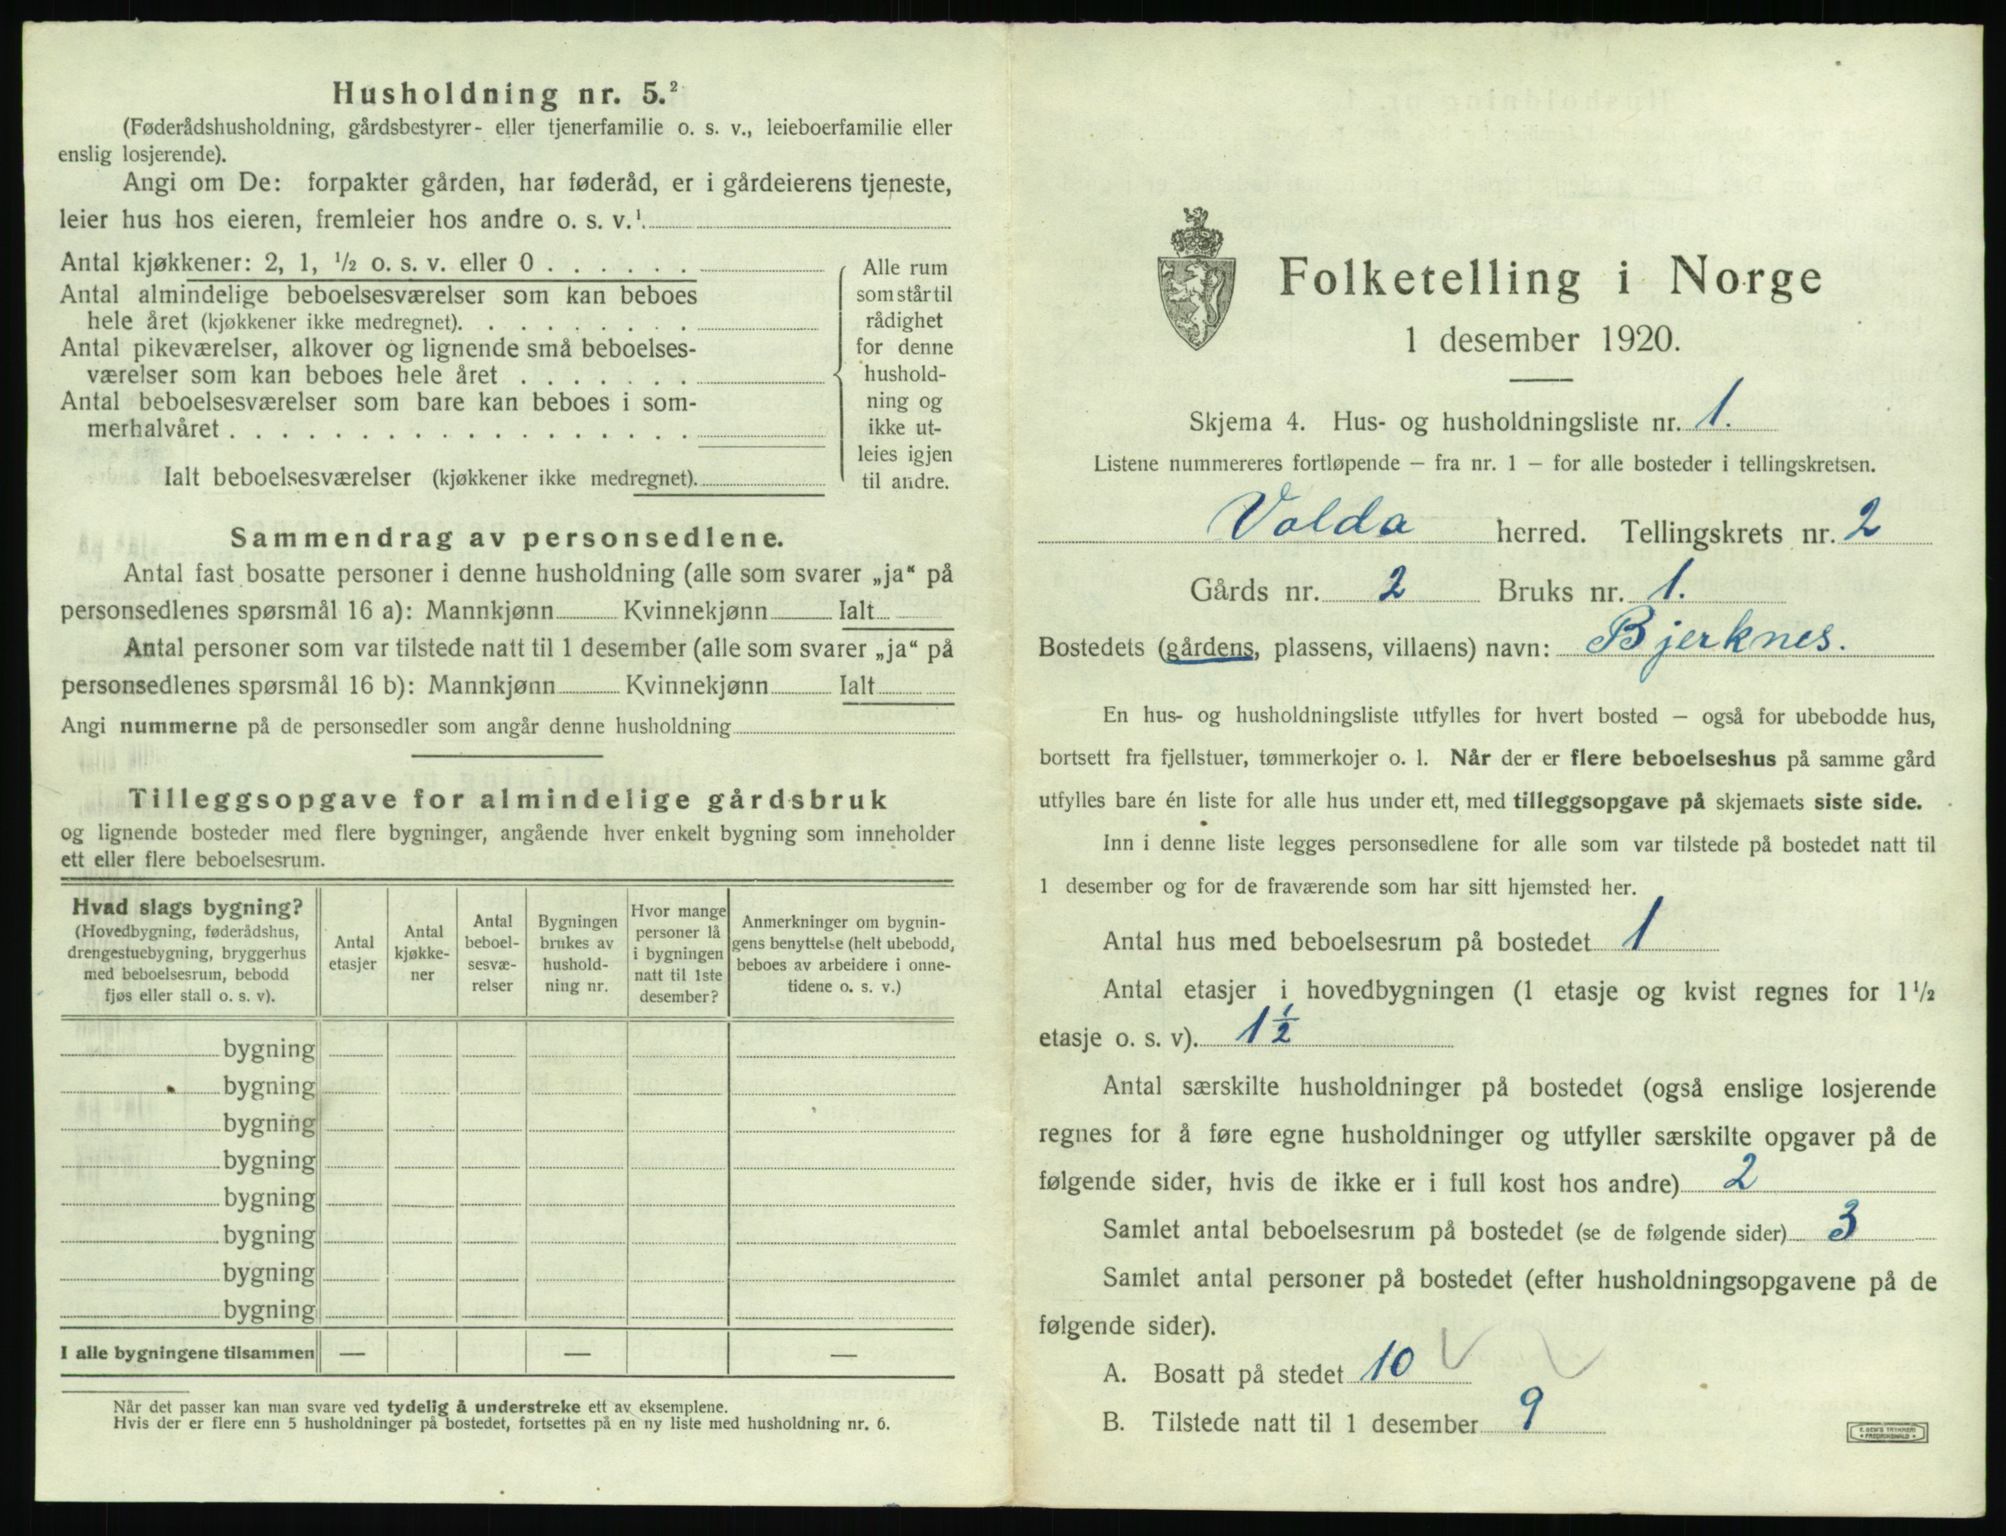 Husholdning nr. 5.²
(Føderådshusholdning, gårdsbestyrer- eller tjenerfamilie o. s. v., leieboerfamilie eller
enslig losjerende).
Angi om De: forpakter gården, har føderåd, er i gårdeierens tjeneste,
leier hus hos eieren, fremleier hos andre o. s. v.¹
Antal kjøkkener: 2, 1, ½ o. s. v. eller 0 . . . . . .
Antal almindelige beboelsesværelser som kan beboes
hele året (kjøkkener ikke medregnet). . . . . . . . .
Antal pikeværelser, alkover og lignende små beboelses-
værelser som kan beboes hele året . . . . . . .
Antal beboelsesværelser som bare kan beboes i som-
merhalvåret . . . . . . . . . . . . . . . . . .
Ialt beboelsesværelser (kjøkkener ikke medregnet).
Alle rum
som står til
rådighet
for denne
hushold-
ning og
ikke ut-
leies igjen
til andre.
Sammendrag av personsedlene.
Antal fast bosatte personer i denne husholdning (alle som svarer „ja“ på
personsedlenes spørsmål 16 a): Mannkjønn Kvinnekjønn Ialt
Antal personer som var tilstede natt til 1 desember (alle som svarer „ja“ på
personsedlenes spørsmål 16 b): Mannkjønn Kvinnekjønn Ialt
Angi nummerne på de personsedler som angår denne husholdning
Tilleggsopgave for almindelige gårdsbruk
og lignende bosteder med flere bygninger, angående hver enkelt bygning som inneholder
ett eller flere beboelsesrum.
Hvad slags bygning?
(Hovedbygning, føderådshus,
drengestuebygning, bryggerhus
med beboelsesrum, bebodd
fjøs eller stall o. s. v).
Antal
etasjer
Antal
kjøkke-
ner
Antal
beboel-
sesvæ-
relser
Bygningen
brukes av
hushold-
ning nr.
Hvor mange
personer lå
i bygningen
natt til 1ste
desember?
Anmerkninger om bygnin-
gens benyttelse (helt ubebodd,
beboes av arbeidere i onne-
tidene o. s. v.)
bygning
bygning
bygning
bygning
bygning
bygning
bygning
bygning
I alle bygningene tilsammen — — —
Når det passer kan man svare ved tydelig å understreke ett av eksemplene.
Hvis der er flere enn 5 husholdninger på bostedet, fortsettes på en ny liste med husholdning nr. 6.
Folketelling i Norge
1 desember 1920.
Skjema 4. Hus- og husholdningsliste nr. 1.
Listene nummereres fortløpende – fra nr. 1 – for alle bosteder i tellingskretsen.
Volda herred. Tellingskrets nr. 2
Gårds nr. 2 Bruks nr. 1.
Bostedets (gårdens, plassens, villaens) navn: Bjerknes.
En hus- og husholdningsliste utfylles for hvert bosted – også for ubebodde hus,
bortsett fra fjellstuer, tømmerkojer o. l. Når der er flere beboelseshus på samme gård
utfylles bare én liste for alle hus under ett, med tilleggsopgave på skjemaets siste side.
Inn i denne liste legges personsedlene for alle som var tilstede på bostedet natt til
1 desember og for de fraværende som har sitt hjemsted her.
Antal hus med beboelsesrum på bostedet 1
Antal etasjer i hovedbygningen (1 etasje og kvist regnes for 1½
etasje o. s. v). 1½
Antal særskilte husholdninger på bostedet (også enslige losjerende
regnes for å føre egne husholdninger og utfyller særskilte opgaver på de
følgende sider, hvis de ikke er i full kost hos andre) 2
Samlet antal beboelsesrum på bostedet (se de følgende sider) 3
Samlet antal personer på bostedet (efter husholdningsopgavene på de
følgende sider).
A. Bosatt på stedet 10
B. Tilstede natt til 1 desember 9